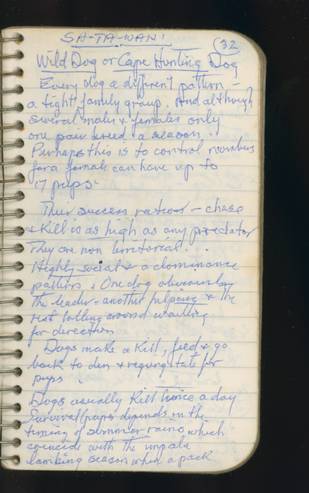 SA-TA-WANI
32
Wild Dog or Cape Hunting Dog
Every dog a different pattern -
a tight family group. And although
several males & females only
one pair breed a season.
Perhaps this is to control numbers
for a female can have up to
17 pups.
Their success ratio - chase
& Kill is as high as any predator
They are non territorial...
Highly social & a dominance
pattern. One dog obviously
the leader - another helping & the
rest lolling around waiting
for direction
Dogs make a Kill, feed & go
back to den & regurgitate for
pups.
Dogs usually Kill twice a day
Survival pups depends on the
timing of summer rains, which
coincide with the impala
lambing season when a pack